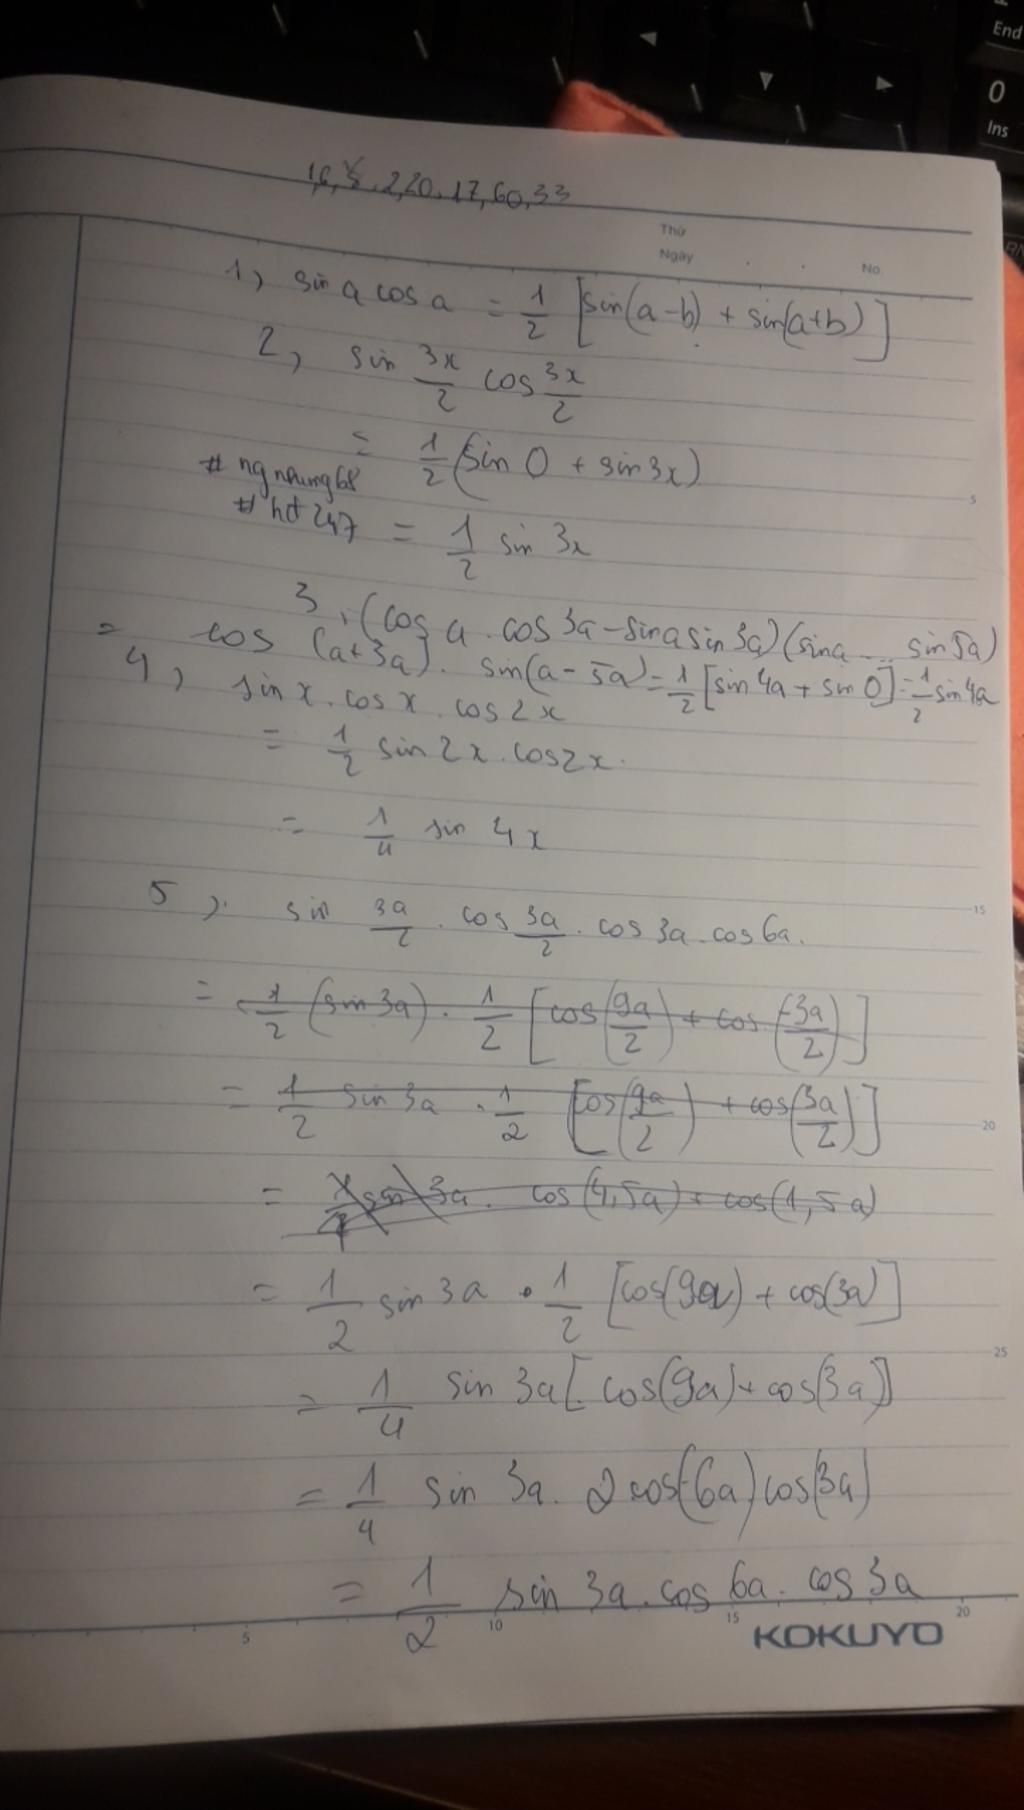 End
0
Ins
16, 8, 2,20, 17, 60, 33
Thứ
Ngày . . No.
1, sin a cos a = 1/2 [sin(a-b) + sin(a+b)]
2, sin 3x/2 cos 3x/2
= 1/2 (sin 0 + sin 3x)
# ngnhung68
# hđ 247
= 1/2 sin 3x
5
3, (cos a . cos 3a - sin a sin 3a) (sin a .. sin 5a)
= cos (a+3a) . sin(a - 5a) = 1/2 [sin 4a + sin 0] = 1/2 sin 4a
4, sin x . cos x . cos 2x
= 1/2 sin 2x . cos 2x .
= 1/4 sin 4x
15
5, sin 3a/2 . cos 3a/2 . cos 3a . cos 6a.
= 1/2 (sin 3a) . 1/2 [cos(9a/2) + cos(-3a/2)]
= 1/2 sin 3a . 1/2 [cos(9a/2) + cos(3a/2)]
20
= 1/4 sin 3a . cos(4,5a) + cos(1,5a)
= 1/2 sin 3a . 1/2 [cos(9a) + cos(3a)]
25
= 1/4 sin 3a [cos(9a) + cos(3a)]
= 1/4 sin 3a . 2 cos(6a) cos(3a)
= 1/2 sin 3a . cos 6a . cos 3a
5 10 15 20
KOKUYO